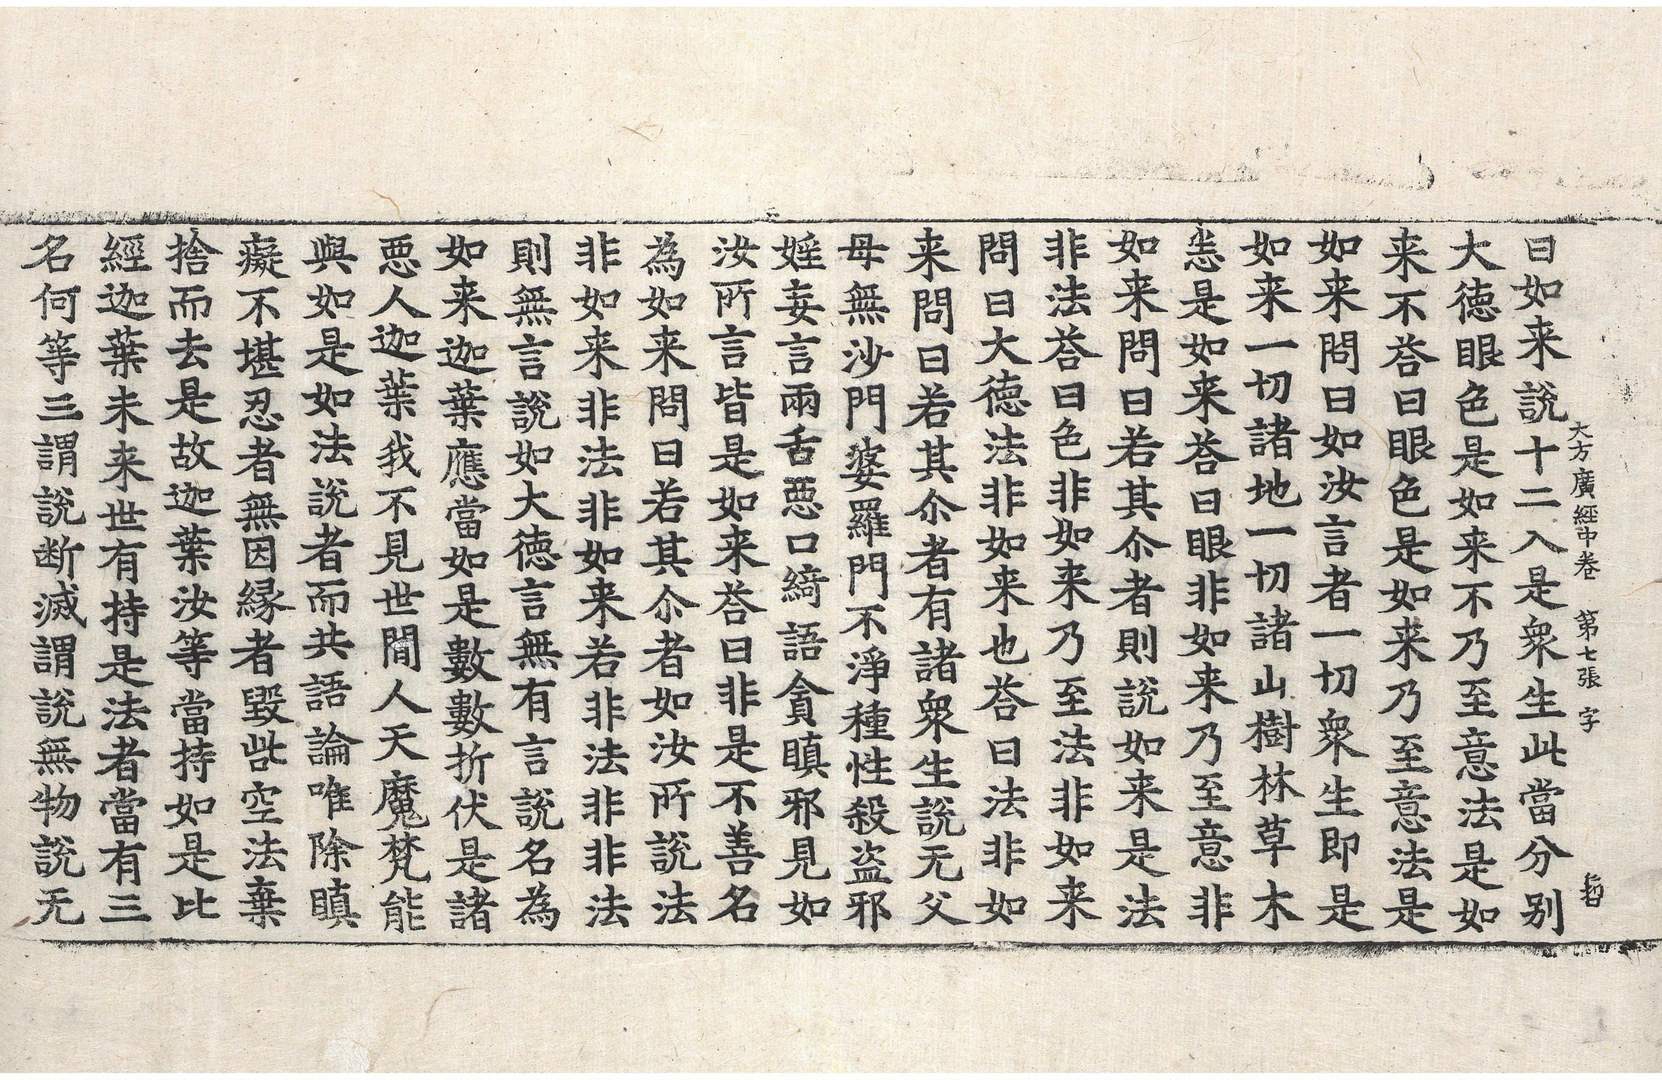 大方廣經中卷　第七張　字
曰如来說十二入是衆生此當分別
大德眼色是如来不乃至意法是如
来不荅曰眼色是如来乃至意法是
如来問曰如汝言者一切衆生即是
如来一切諸地一切諸山樹林草木
悉是如来荅曰眼非如来乃至意非
如来問曰若其尒者則說如来是法
非法荅曰色非如来乃至法非如来
問曰大德法非如来也荅曰法非如
来問曰若其尒者有諸衆生說无父
母無沙門婆羅門不淨種性殺盜邪
婬妄言兩舌惡口綺語貪瞋邪見如
汝所言皆是如来荅曰非是不善名
為如来問曰若其尒者如汝所說法
非如来非法非如来若非法非非法
則無言說如大德言無有言說名為
如来迦葉應當如是數數折伏是諸
惡人迦葉我不見世間人天魔梵能
與如是如法說者而共語論唯除瞋
癡不堪忍者無因緣者毀呰空法棄
捨而去是故迦葉汝等當持如是比
經迦葉未来世有持是法者當有三
名何等三謂說断滅謂說無物說无